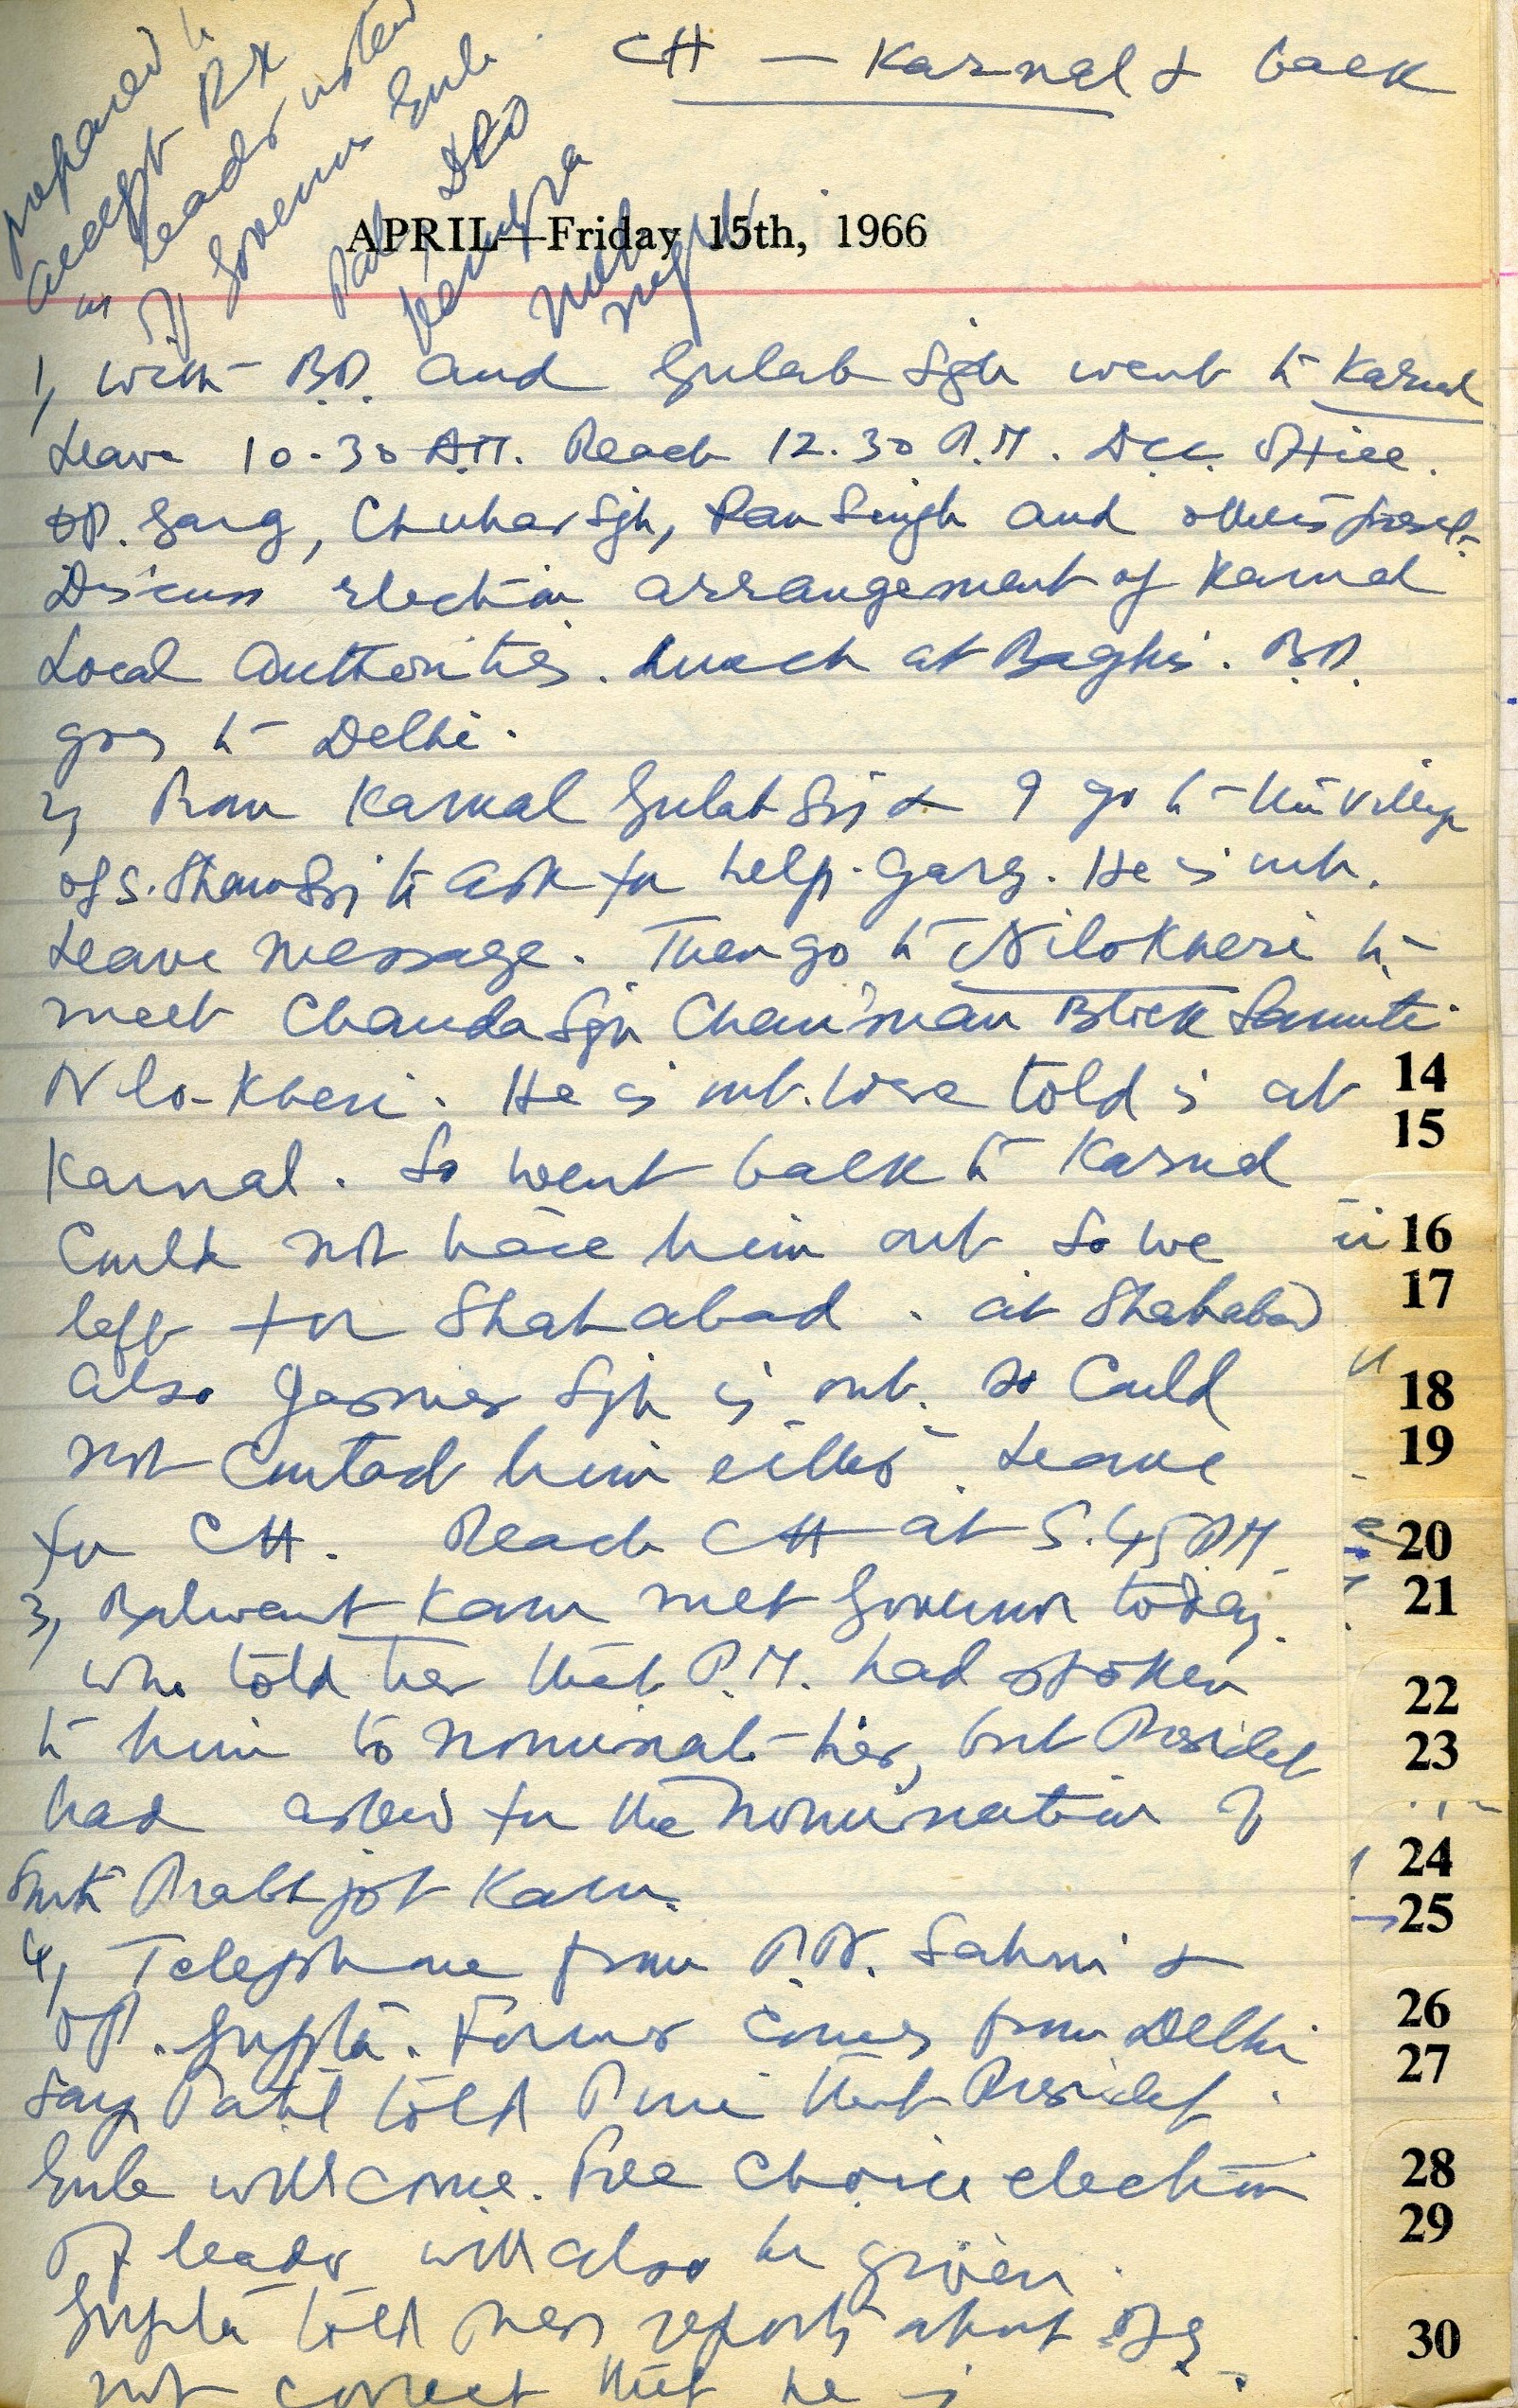 CH — Karnal & back
prepared to
accept RK
as leader instead
of Governors Rule
APRIL—Friday 15th, 1966
1, With B.D. and Gulab Sgh went to Karnal
Leave 10.30 A.M. Reach 12.30 P.M. DCC. Office.
OP. Garg, Chuhar Sgh, Ran Singh and others present
Discuss election arrangement of Karnal
Local Authorities. Lunch at Baghi. B.D.
goes to Delhi.
2, From Karnal Gulab Sgh & I go to the village
of S. Sham Sgh to ask for help. Garg. He is out.
Leave message. Then go to Nilokheri to
meet Chanda Sgh Chairman Block Samiti
Nilo-Kheri. He is out. Were told is at
Karnal. So went back to Karnal
Could not trace him out so we
left for Shahabad. at Shahabad
also Jasmer Sgh is out. So Could
not Contact him either. Leave
for CH. Reach CH at 5.45 PM
3, Balwant Kaur met Governor today.
who told her that P.M. had spoken
to him to nominate her, but President
had asked for the nomination of
Smt Prabhjot Kaur.
4, Telephone from P.N. Sahni &
OP. Gupta. Former comes from Delhi
say Patil told that President
Rule will come. Free choice election
of leader will also be given.
Gupta told reports about
not correct that he is
14
15
16
17
18
19
20
21
22
23
24
25
26
27
28
29
30